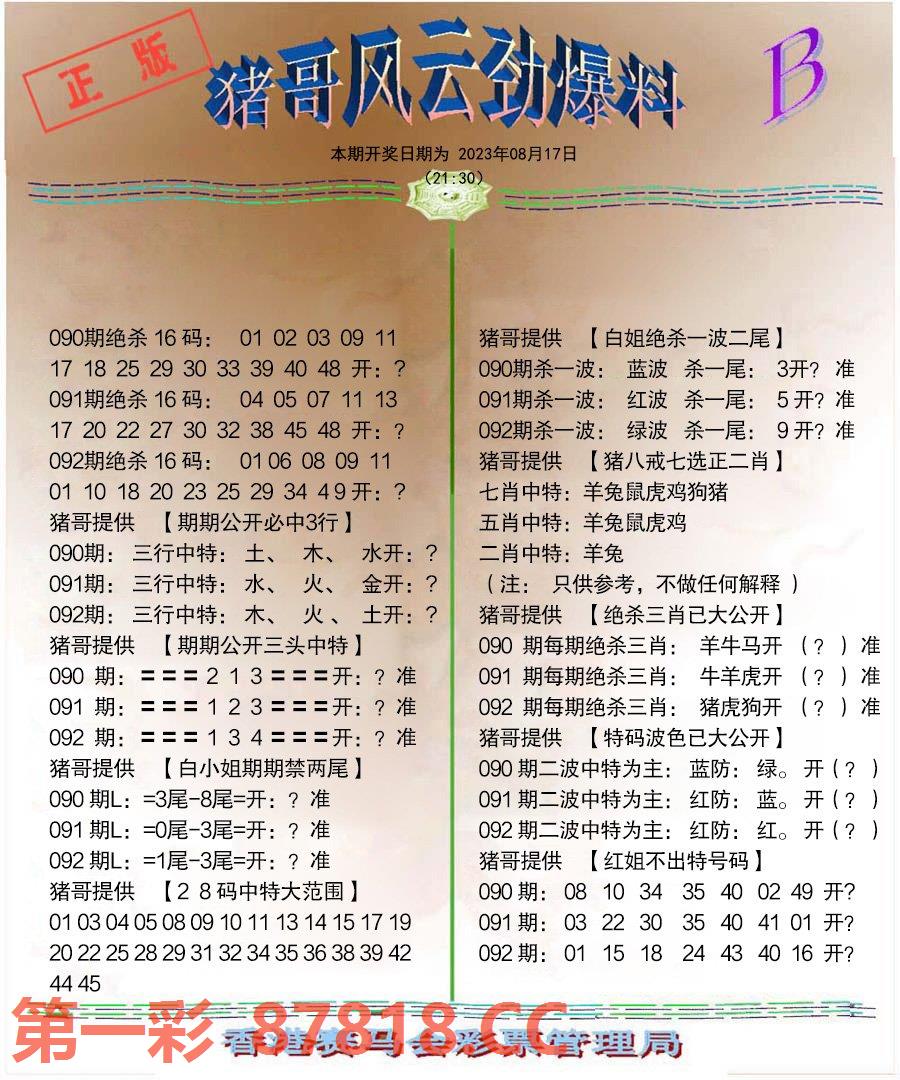 正版
猪哥风云劲爆料
B
本期开奖日期为 2023年08月17日
(21:30)
090期绝杀 16 码： 01 02 03 09 11
17 18 25 29 30 33 39 40 48 开：?
091期绝杀 16 码： 04 05 07 11 13
17 20 22 27 30 32 38 45 48 开：?
092期绝杀 16 码： 01 06 08 09 11
01 10 18 20 23 25 29 34 4 9 开：?
猪哥提供 【期期公开必中3行】
090期： 三行中特： 土、 木、 水开：?
091期： 三行中特： 水、 火、 金开：?
092期： 三行中特： 木、 火 、 土开：?
猪哥提供 【期期公开三头中特】
090 期：〓〓〓 2 1 3 〓〓〓开：? 准
091 期：〓〓〓 1 2 3 〓〓〓开：? 准
092 期：〓〓〓 1 3 4 〓〓〓开：? 准
猪哥提供 【白小姐期期禁两尾】
090 期L：=3尾-8尾=开：? 准
091 期L：=0尾-3尾=开：? 准
092 期L：=1尾-3尾=开：? 准
猪哥提供 【2 8 码中特大范围】
01 03 04 05 08 09 10 11 13 14 15 17 19
20 22 25 28 29 31 32 34 35 36 38 39 42
44 45
猪哥提供 【白姐绝杀一波二尾】
090期杀一波： 蓝波 杀一尾： 3开? 准
091期杀一波： 红波 杀一尾： 5 开? 准
092期杀一波： 绿波 杀一尾： 9 开? 准
猪哥提供 【猪八戒七选正二肖】
七肖中特：羊兔鼠虎鸡狗猪
五肖中特：羊兔鼠虎鸡
二肖中特：羊兔
（注： 只供参考，不做任何解释 ）
猪哥提供 【绝杀三肖已大公开】
090 期每期绝杀三肖： 羊牛马开 （? ）准
091 期每期绝杀三肖： 牛羊虎开 （? ）准
092 期每期绝杀三肖： 猪虎狗开 （? ）准
猪哥提供 【特码波色已大公开】
090 期二波中特为主：蓝防：绿。开（? ）
091 期二波中特为主：红防：蓝。开（? ）
092 期二波中特为主：红防：红。开（? ）
猪哥提供 【红姐不出特号码】
090 期： 08 10 34 35 40 02 49 开?
091 期： 03 22 30 35 40 41 01 开?
092 期： 01 15 18 24 43 40 16 开?
第一彩 87818.CC
香港赛马会彩票管理局